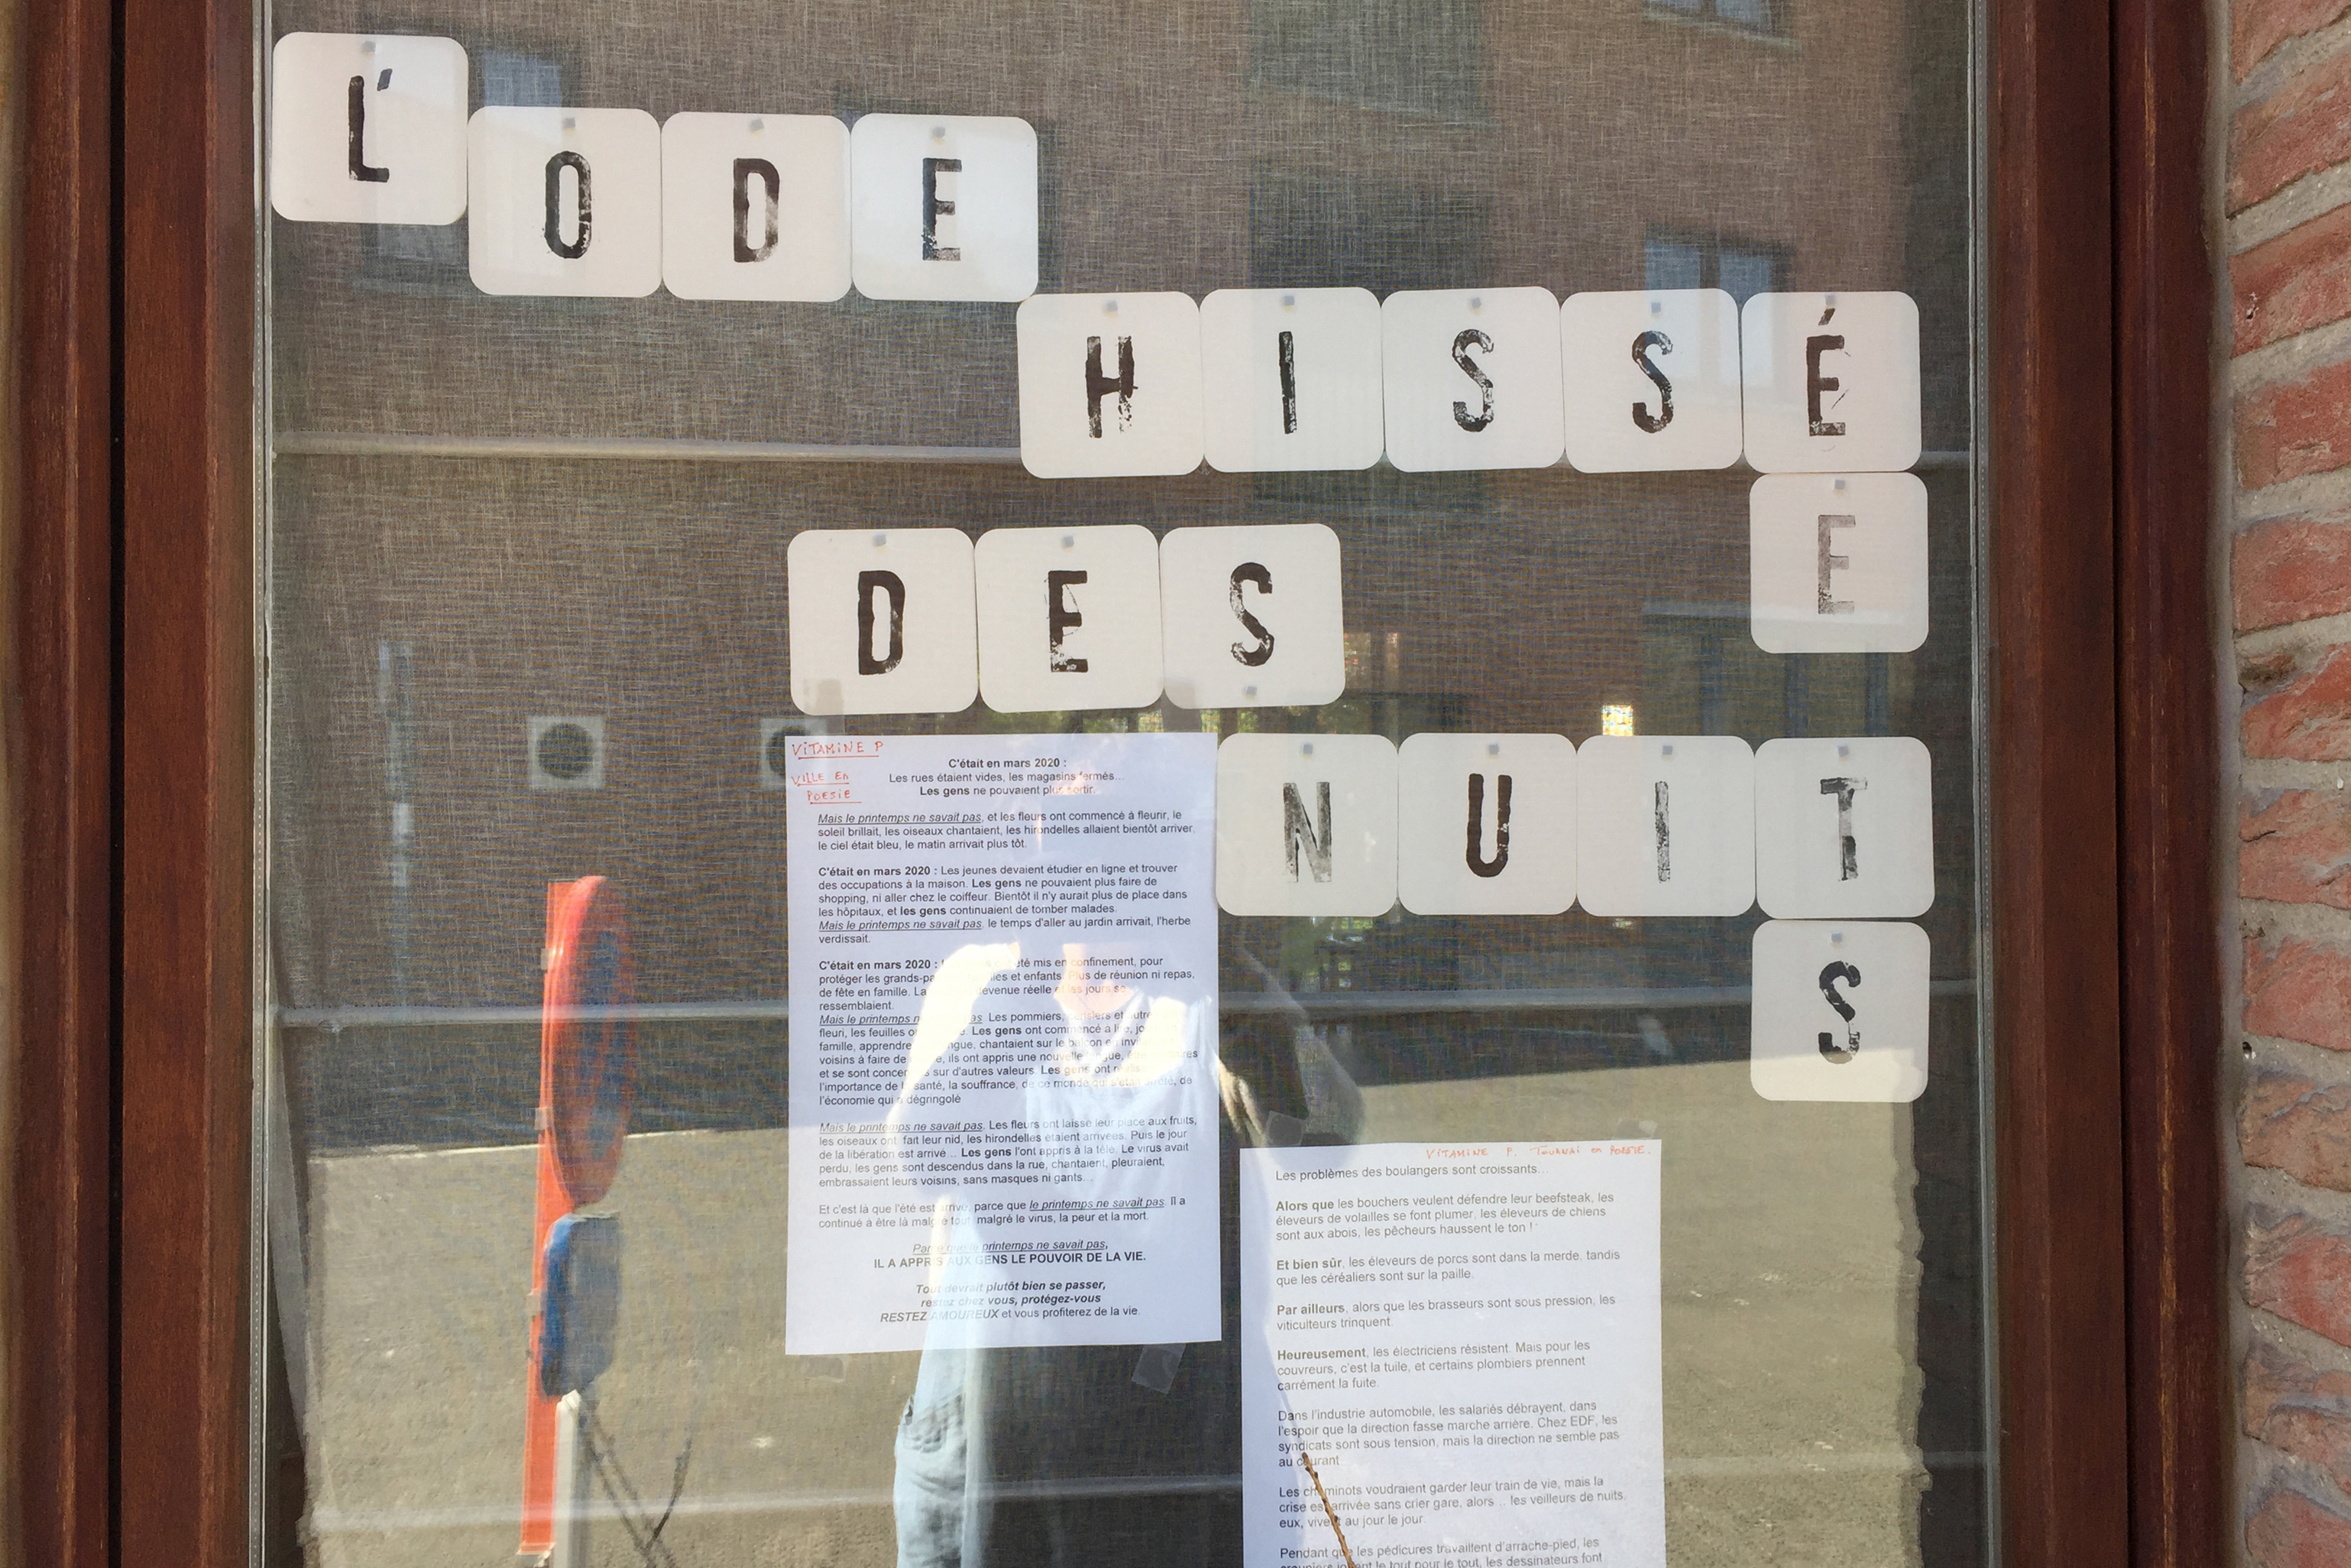 L'ODE
HISSÉ
E
DES
NUIT
S
VITAMINE P
VILLE EN
POESIE
C'était en mars 2020 :
Les rues étaient vides, les magasins fermés...
Les gens ne pouvaient plus sortir.
Mais le printemps ne savait pas, et les fleurs ont commencé à fleurir, le
soleil brillait, les oiseaux chantaient, les hirondelles allaient bientôt arriver,
le ciel était bleu, le matin arrivait plus tôt.
C'était en mars 2020 : Les jeunes devaient étudier en ligne et trouver
des occupations à la maison. Les gens ne pouvaient plus faire de
shopping, ni aller chez le coiffeur. Bientôt il n'y aurait plus de place dans
les hôpitaux, et les gens continuaient de tomber malades.
Mais le printemps ne savait pas, le temps d'aller au jardin arrivait, l'herbe
verdissait.
C'était en mars 2020 : été mis en confinement, pour
protéger les et enfants. Plus de réunion ni repas,
de fête en famille. La devenue réelle et les jours se
ressemblaient.
Mais le printemps pas. Les pommiers, et
fleuri, les feuilles Les gens ont commencé à
famille, apprendre chantaient sur le balcon en
voisins à faire de ils ont appris une nouvelle
et se sont sur d'autres valeurs. Les gens ont
l'importance de la santé, la souffrance, de ce monde qui s'était arrêté, de
l'économie qui a dégringolé
Mais le printemps ne savait pas. Les fleurs ont laissé leur place aux fruits,
les oiseaux ont fait leur nid, les hirondelles étaient arrivées. Puis le jour
de la libération est arrivé... Les gens l'ont appris à la télé. Le virus avait
perdu, les gens sont descendus dans la rue, chantaient, pleuraient,
embrassaient leurs voisins, sans masques ni gants...
Et c'est là que l'été est arrivé, parce que le printemps ne savait pas. Il a
continué à être là malgré tout, malgré le virus, la peur et la mort.
Parce que le printemps ne savait pas,
IL A APPRIS AUX GENS LE POUVOIR DE LA VIE.
Tout devrait plutôt bien se passer,
restez chez vous, protégez-vous
RESTEZ AMOUREUX et vous profiterez de la vie.
VITAMINE P. TOURNAI en POESIE.
Les problèmes des boulangers sont croissants...
Alors que les bouchers veulent défendre leur beefsteak, les
éleveurs de volailles se font plumer, les éleveurs de chiens
sont aux abois, les pêcheurs haussent le ton !
Et bien sûr, les éleveurs de porcs sont dans la merde, tandis
que les céréaliers sont sur la paille.
Par ailleurs, alors que les brasseurs sont sous pression, les
viticulteurs trinquent.
Heureusement, les électriciens résistent. Mais pour les
couvreurs, c'est la tuile, et certains plombiers prennent
carrément la fuite.
Dans l'industrie automobile, les salariés débrayent, dans
l'espoir que la direction fasse marche arrière. Chez EDF, les
syndicats sont sous tension, mais la direction ne semble pas
au courant.
Les cheminots voudraient garder leur train de vie, mais la
crise est arrivée sans crier gare, alors... les veilleurs de nuits,
eux, vivent au jour le jour.
Pendant que les pédicures travaillent d'arrache-pied, les
le tout pour le tout, les dessinateurs font